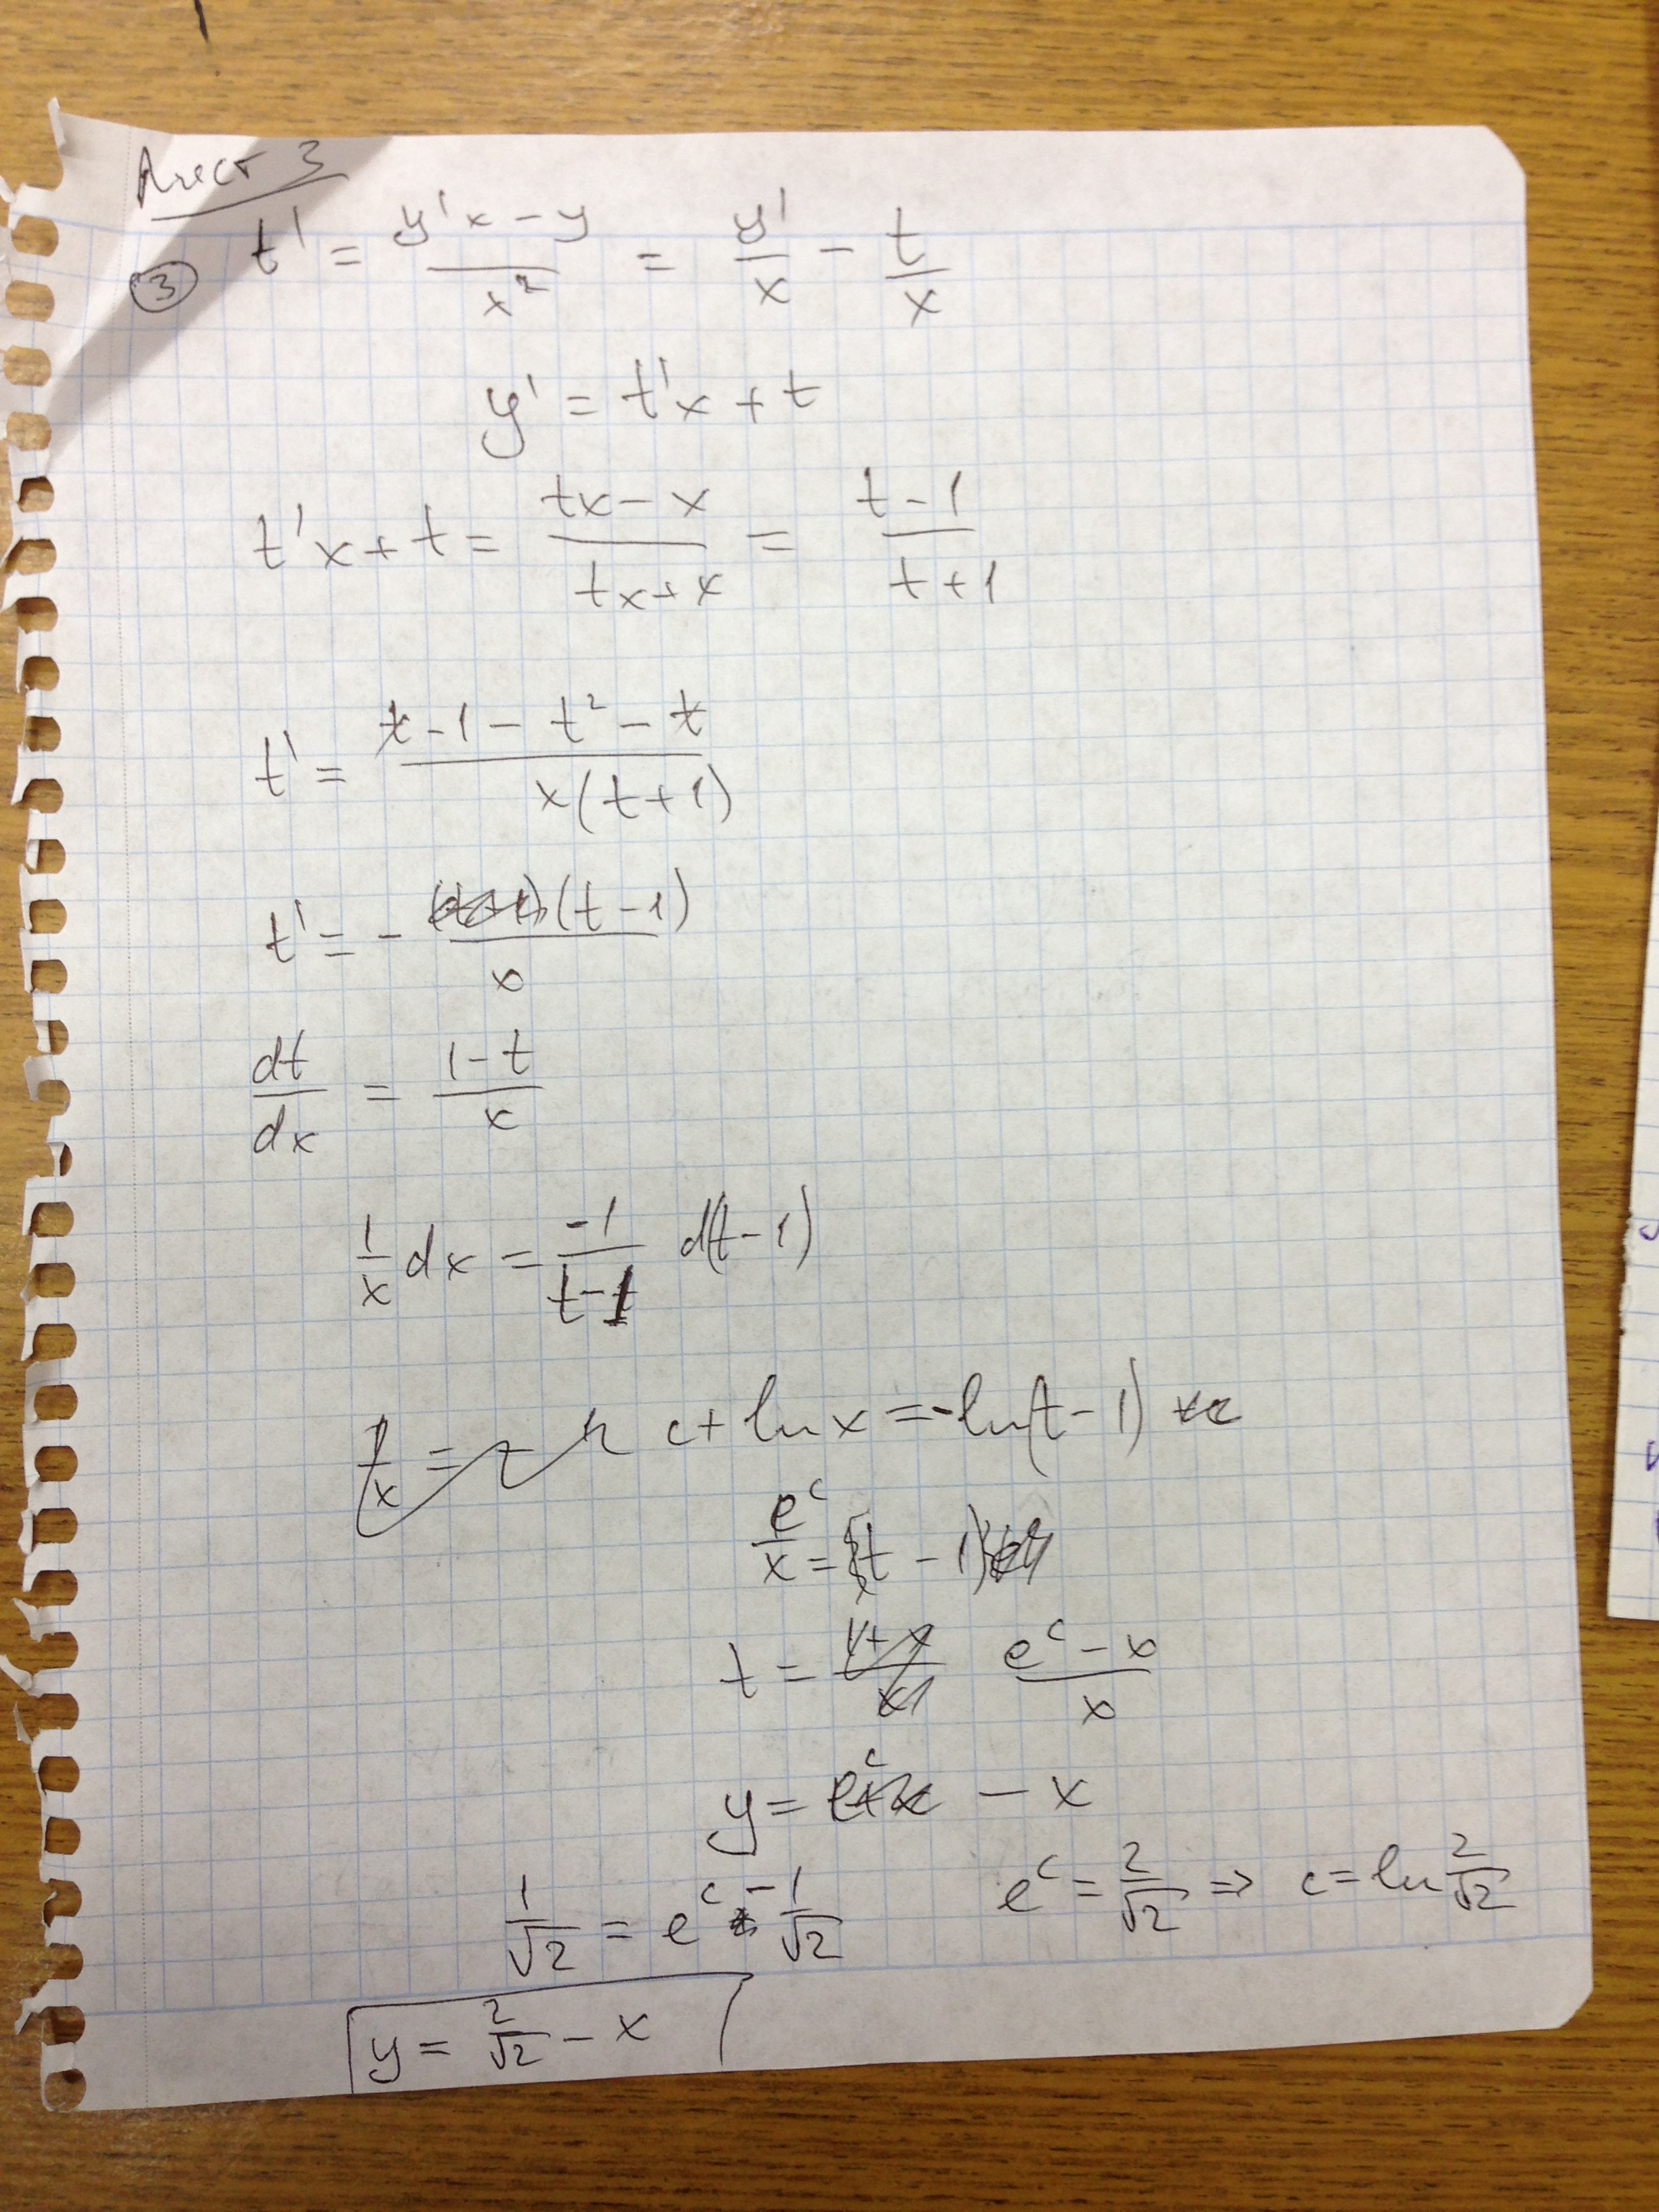 Лист 3
③ t' = (y'x - y)/x² = y'/x - t/x
y' = t'x + t
t'x + t = (tx - x)/(tx + x) = (t - 1)/(t + 1)
t' = (t - 1 - t² - t)/(x(t + 1))
t' = - (t - 1)/x
dt/dx = (1 - t)/x
1/x dx = -1/(t - 1) d(t - 1)
c + ln x = -ln(t - 1)
e^c/x = t - 1
t = (e^c - x)/x
y = e^c - x
1/√2 = e^c - 1/√2 e^c = 2/√2 ⇒ c = ln 2/√2
y = 2/√2 - x